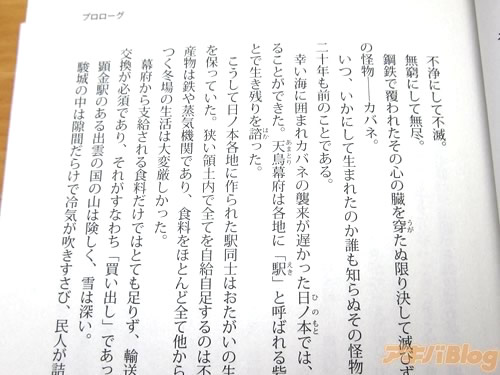 プロローグ
不浄にして不滅。
無窮にして無尽。
鋼鉄で覆われたその心の臓を穿たぬ限り決して滅びず
の怪物――カバネ。
いつ、いかにして生まれたのか誰も知らぬその怪物
二十年も前のことである。
幸い海に囲まれカバネの襲来が遅かった日ノ本では、
ることができた。天鳥幕府は各地に「駅」と呼ばれる砦
とで生き残りを諮った。
こうして日ノ本各地に作られた駅同士はおたがいの生
を保っていた。狭い領土内で全てを自給自足するのは不
産物は鉄や蒸気機関であり、食料をほとんど全て他から
つく冬場の生活は大変厳しかった。
幕府から支給される食料だけではとても足りず、輸送
交換が必須であり、それがすなわち「買い出し」であっ
顕金駅のある出雲の国の山は険しく、雪は深い。
駿城の中は隙間だらけで冷気が吹きすさび、民人が詰
アキバBlog